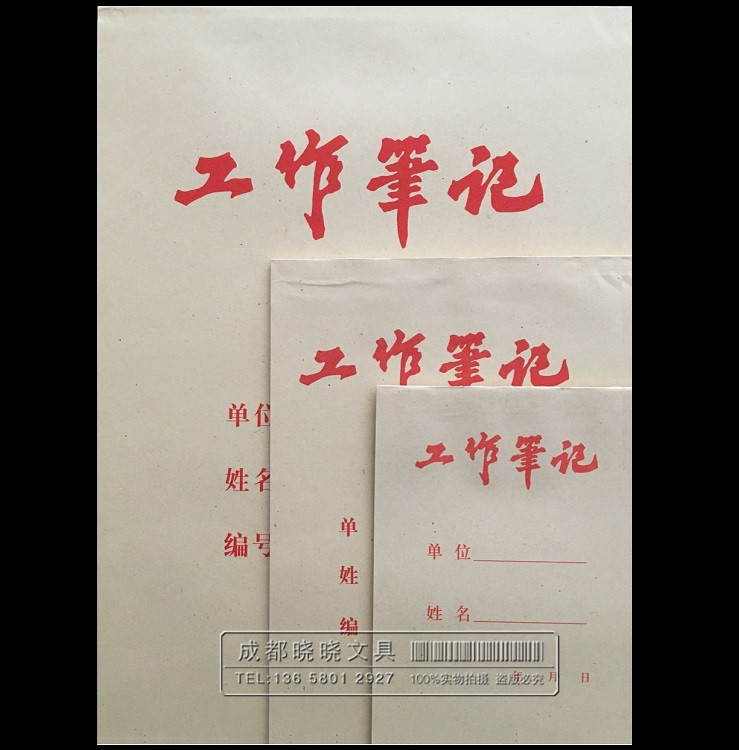 工作筆记
单位
姓名
编号
工作筆记
单
姓
编
工作筆记
单 位
姓 名
年 月 日
成都晓晓文具
TEL:136 5801 2927 100%实物拍摄 盗版必究